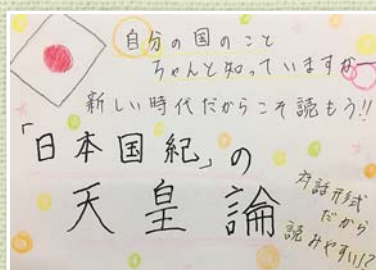 自分の国のこと
ちゃんと知っていますかー
新しい時代だからこそ読もう!!
「日本国紀」の
天皇論
対話形式
だから
読みやすい!?